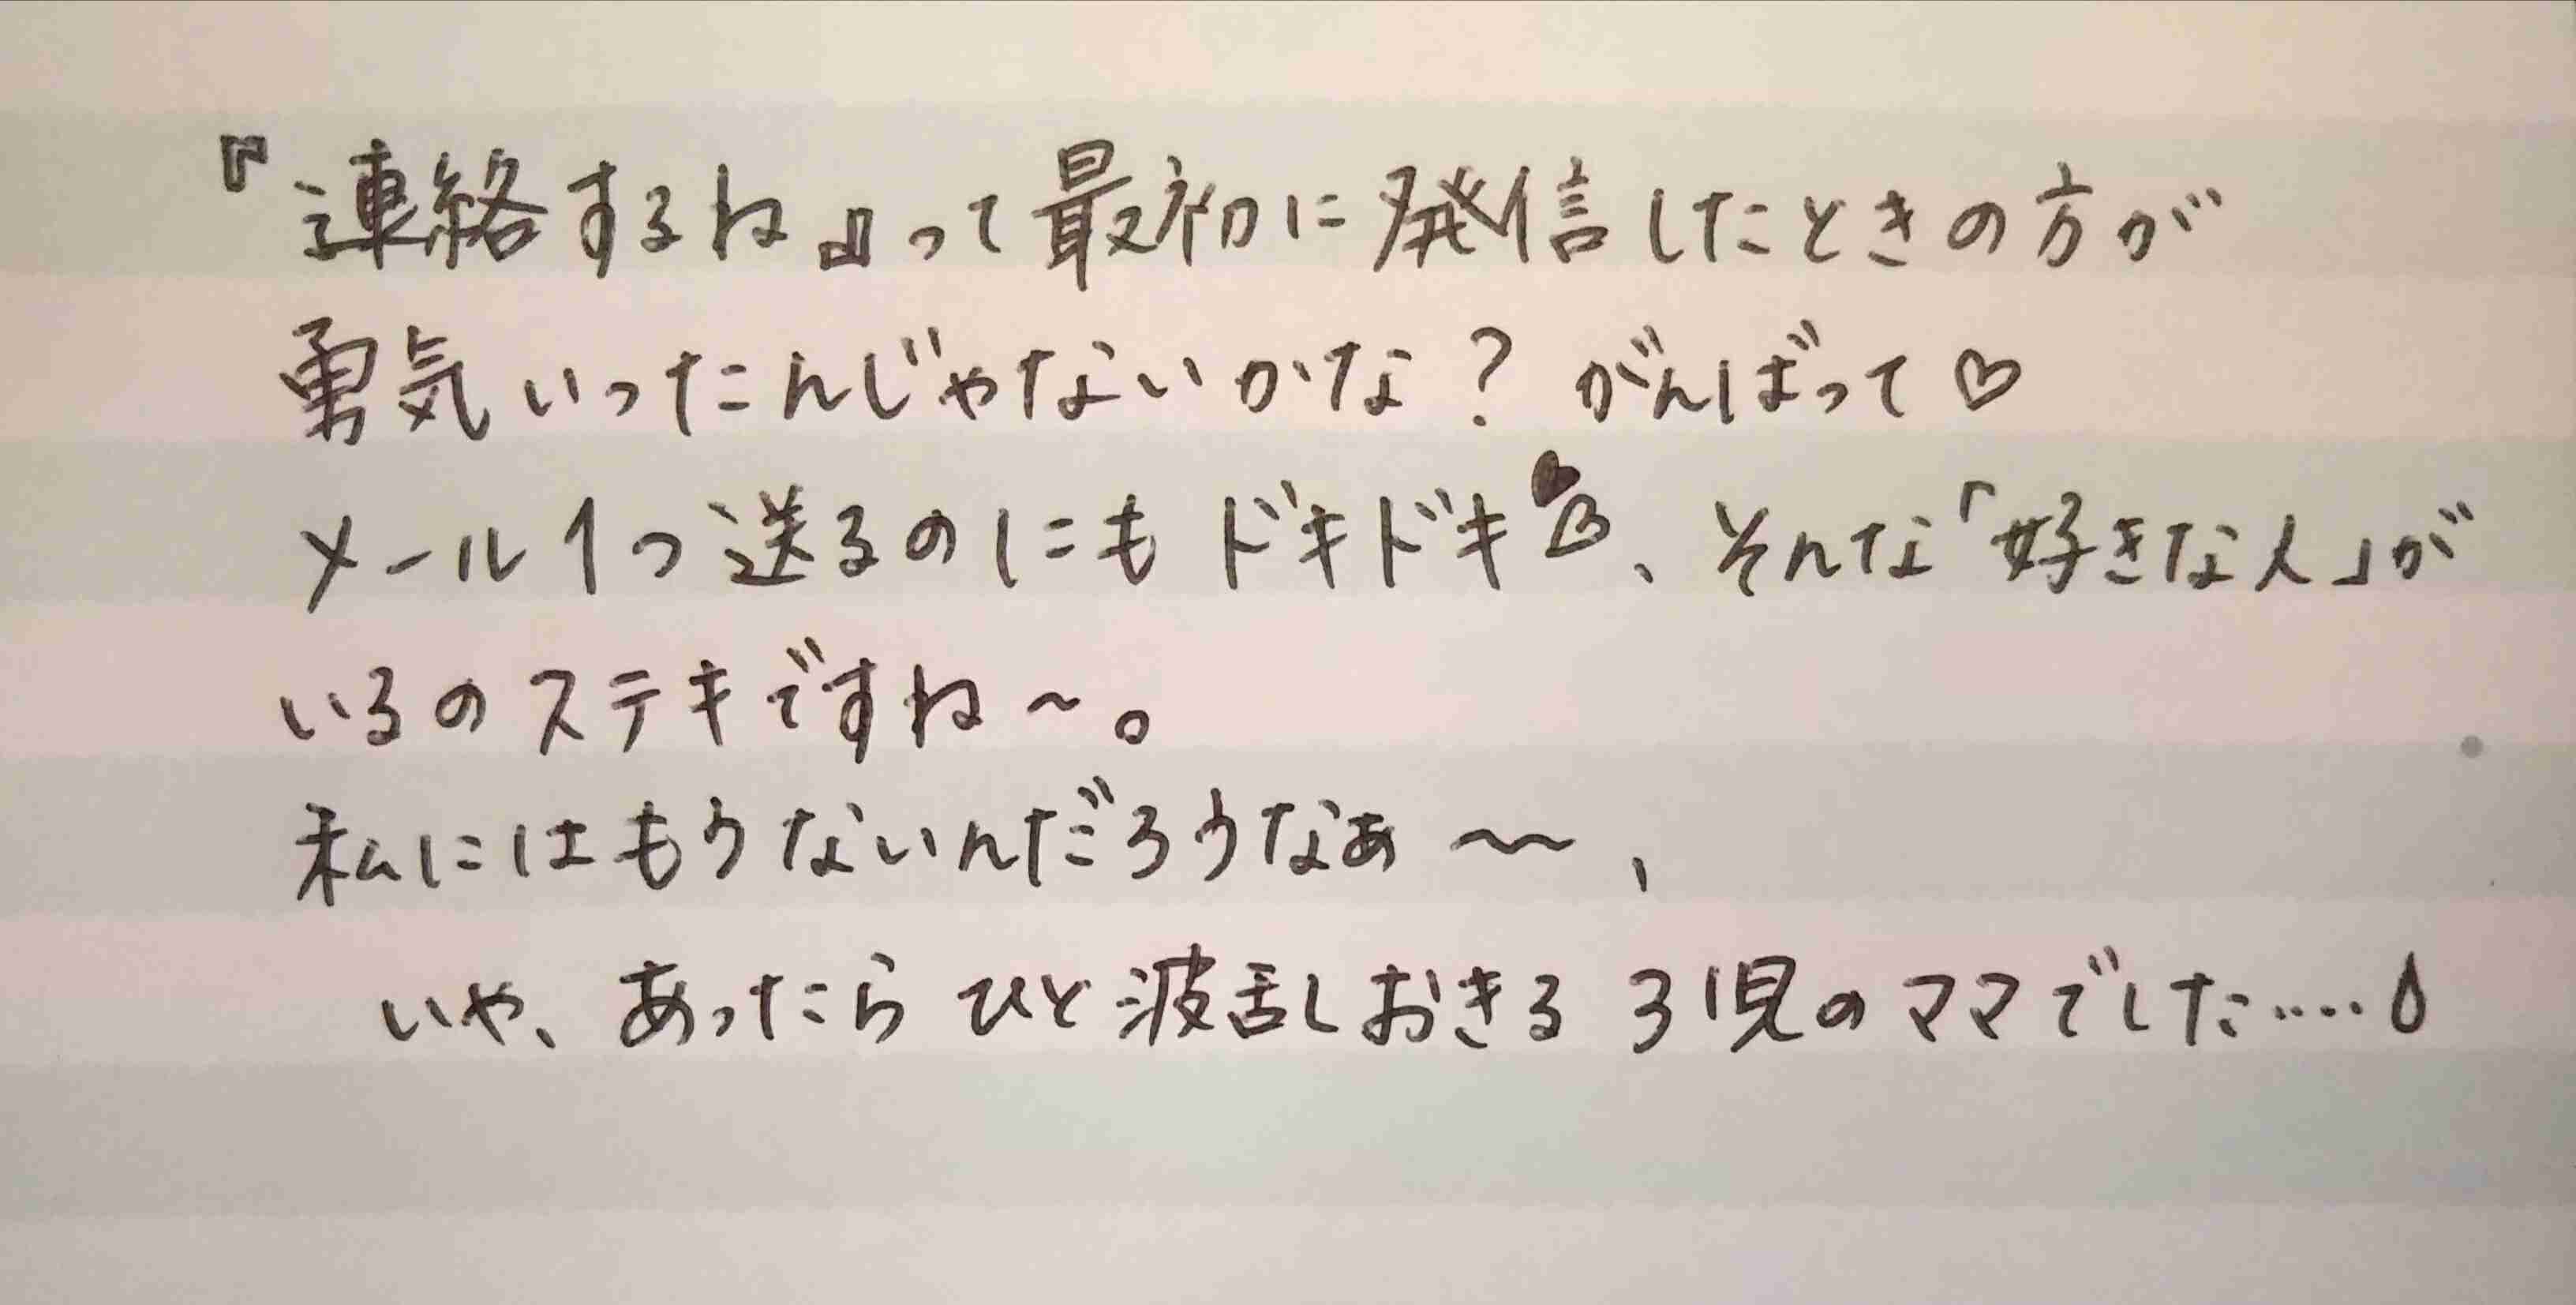 『連絡するね』って最初に発信したときの方が
勇気いったんじゃないかな？ がんばって♡
メール1つ送るのにもドキドキ♥♡、そんな「好きな人」が
いるのステキですね〜。
私にはもうないんだろうなぁ〜、
いや、あったらひと波乱しおきる3児のママでした‥‥💧